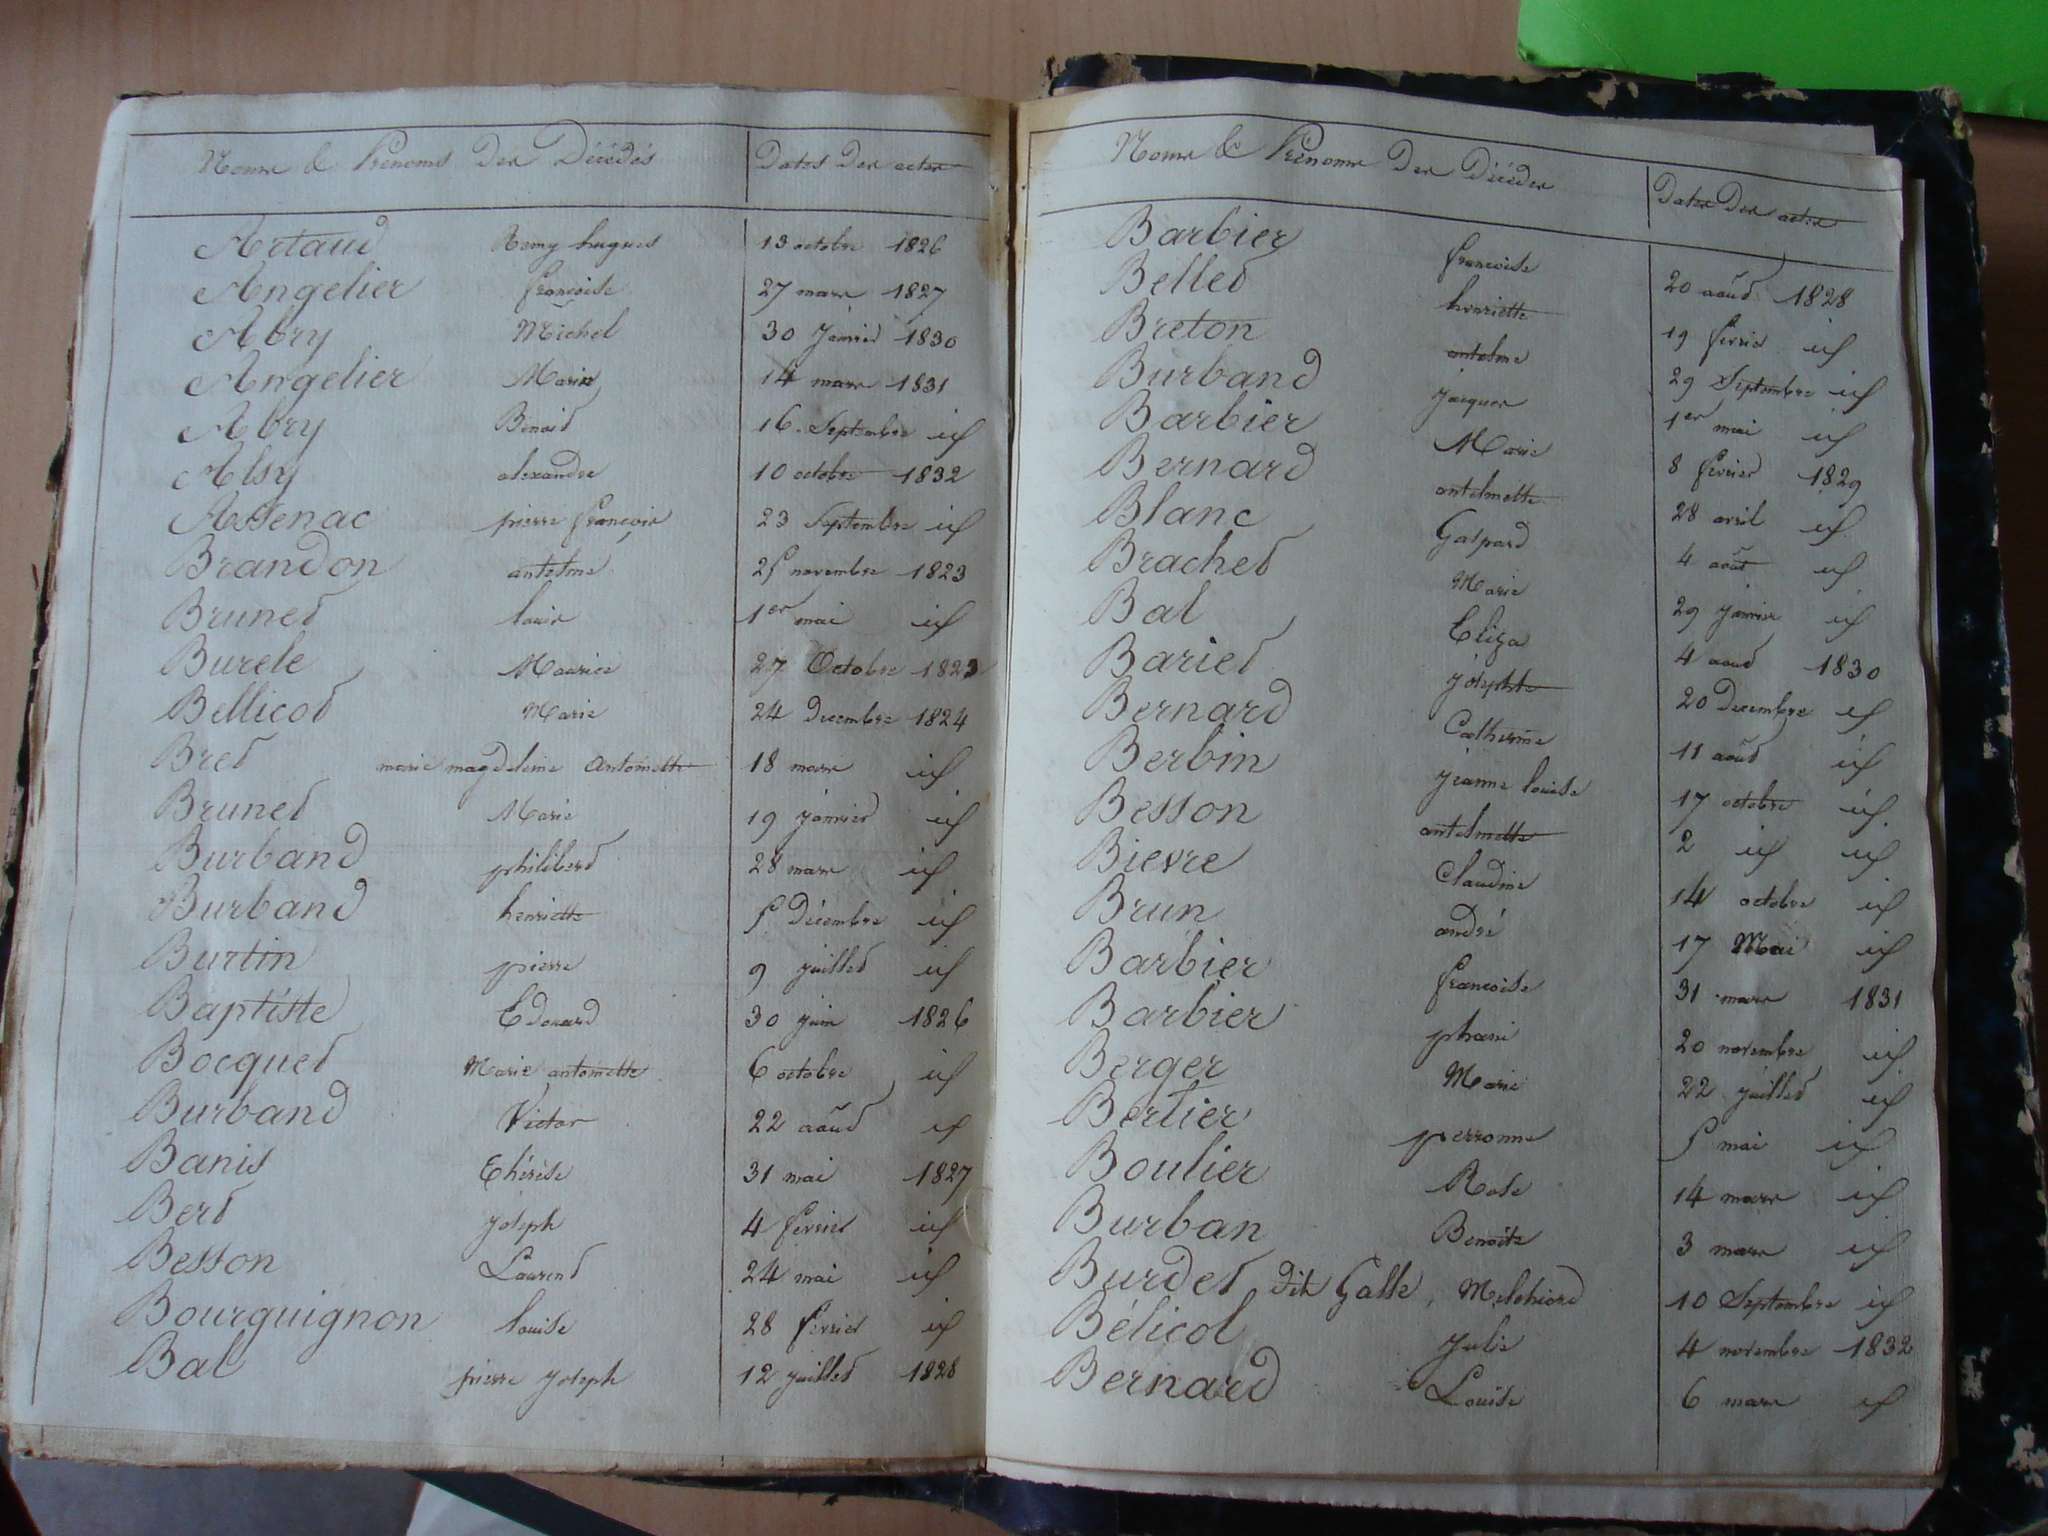 Noms & Prénoms Des Décédés Dates Des actes
Artaud Remy hugues 13 octobre 1826
Angelier francoise 27 mars 1827
Abry Michel 30 janvier 1830
Angelier Marie 14 mars 1831
Abry Benoit 16 Septembre id
Alsy alexandre 10 octobre 1832
Assenac pierre francois 23 Septembre id
Brandon antelme 25 novembre 1823
Brunet louis 1er mai id
Burele Maurice 27 Octobre 1823
Bellicot Marie 24 Decembre 1824
Bret marie magdeleine Antoinette 18 mars id
Brunet Marie 19 janvier id
Burband philibert 28 mars id
Burband henriette 5 Décembre id
Burtin pierre 9 juillet id
Baptiste Edouard 30 juin 1826
Bocquet Marie antoinette 6 octobre id
Burband Victor 22 août id
Banis Thérèse 31 mai 1827
Bert joseph 4 fevrier id
Besson Laurent 24 mai id
Bourguignon louise 28 fevrier id
Bal pierre joseph 12 juillet 1828
Noms & Prénoms Des Décédés Dates Des actes
Barbier francoise 20 août 1828
Bellet henriette 19 fevrier id
Breton antelme 29 Septembre id
Burband jacques 1er mai id
Barbier Marie 8 fevrier 1829
Bernard antelmette 28 avril id
Blanc Gaspard 4 août id
Brachet Marie 29 janvier id
Bal Eliza 4 aout 1830
Bariet josephte 20 Decembre id
Bernard Catherine 11 août id
Berbin jeanne louise 17 octobre id
Besson antelmette 2 id id
Bievre Claudine 14 octobre id
Brun andré 17 Mai id
Barbier francoise 31 mars 1831
Barbier 20 novembre id
Berger Marie 22 juillet id
Bertier perronne 5 mai id
Boulier Rose 14 mars id
Burban Benoite 3 mars id
Burdet dit Galle, Melchiord 10 Septembre id
Bélicot Julie 4 novembre 1832
Bernard Louise 6 mars id